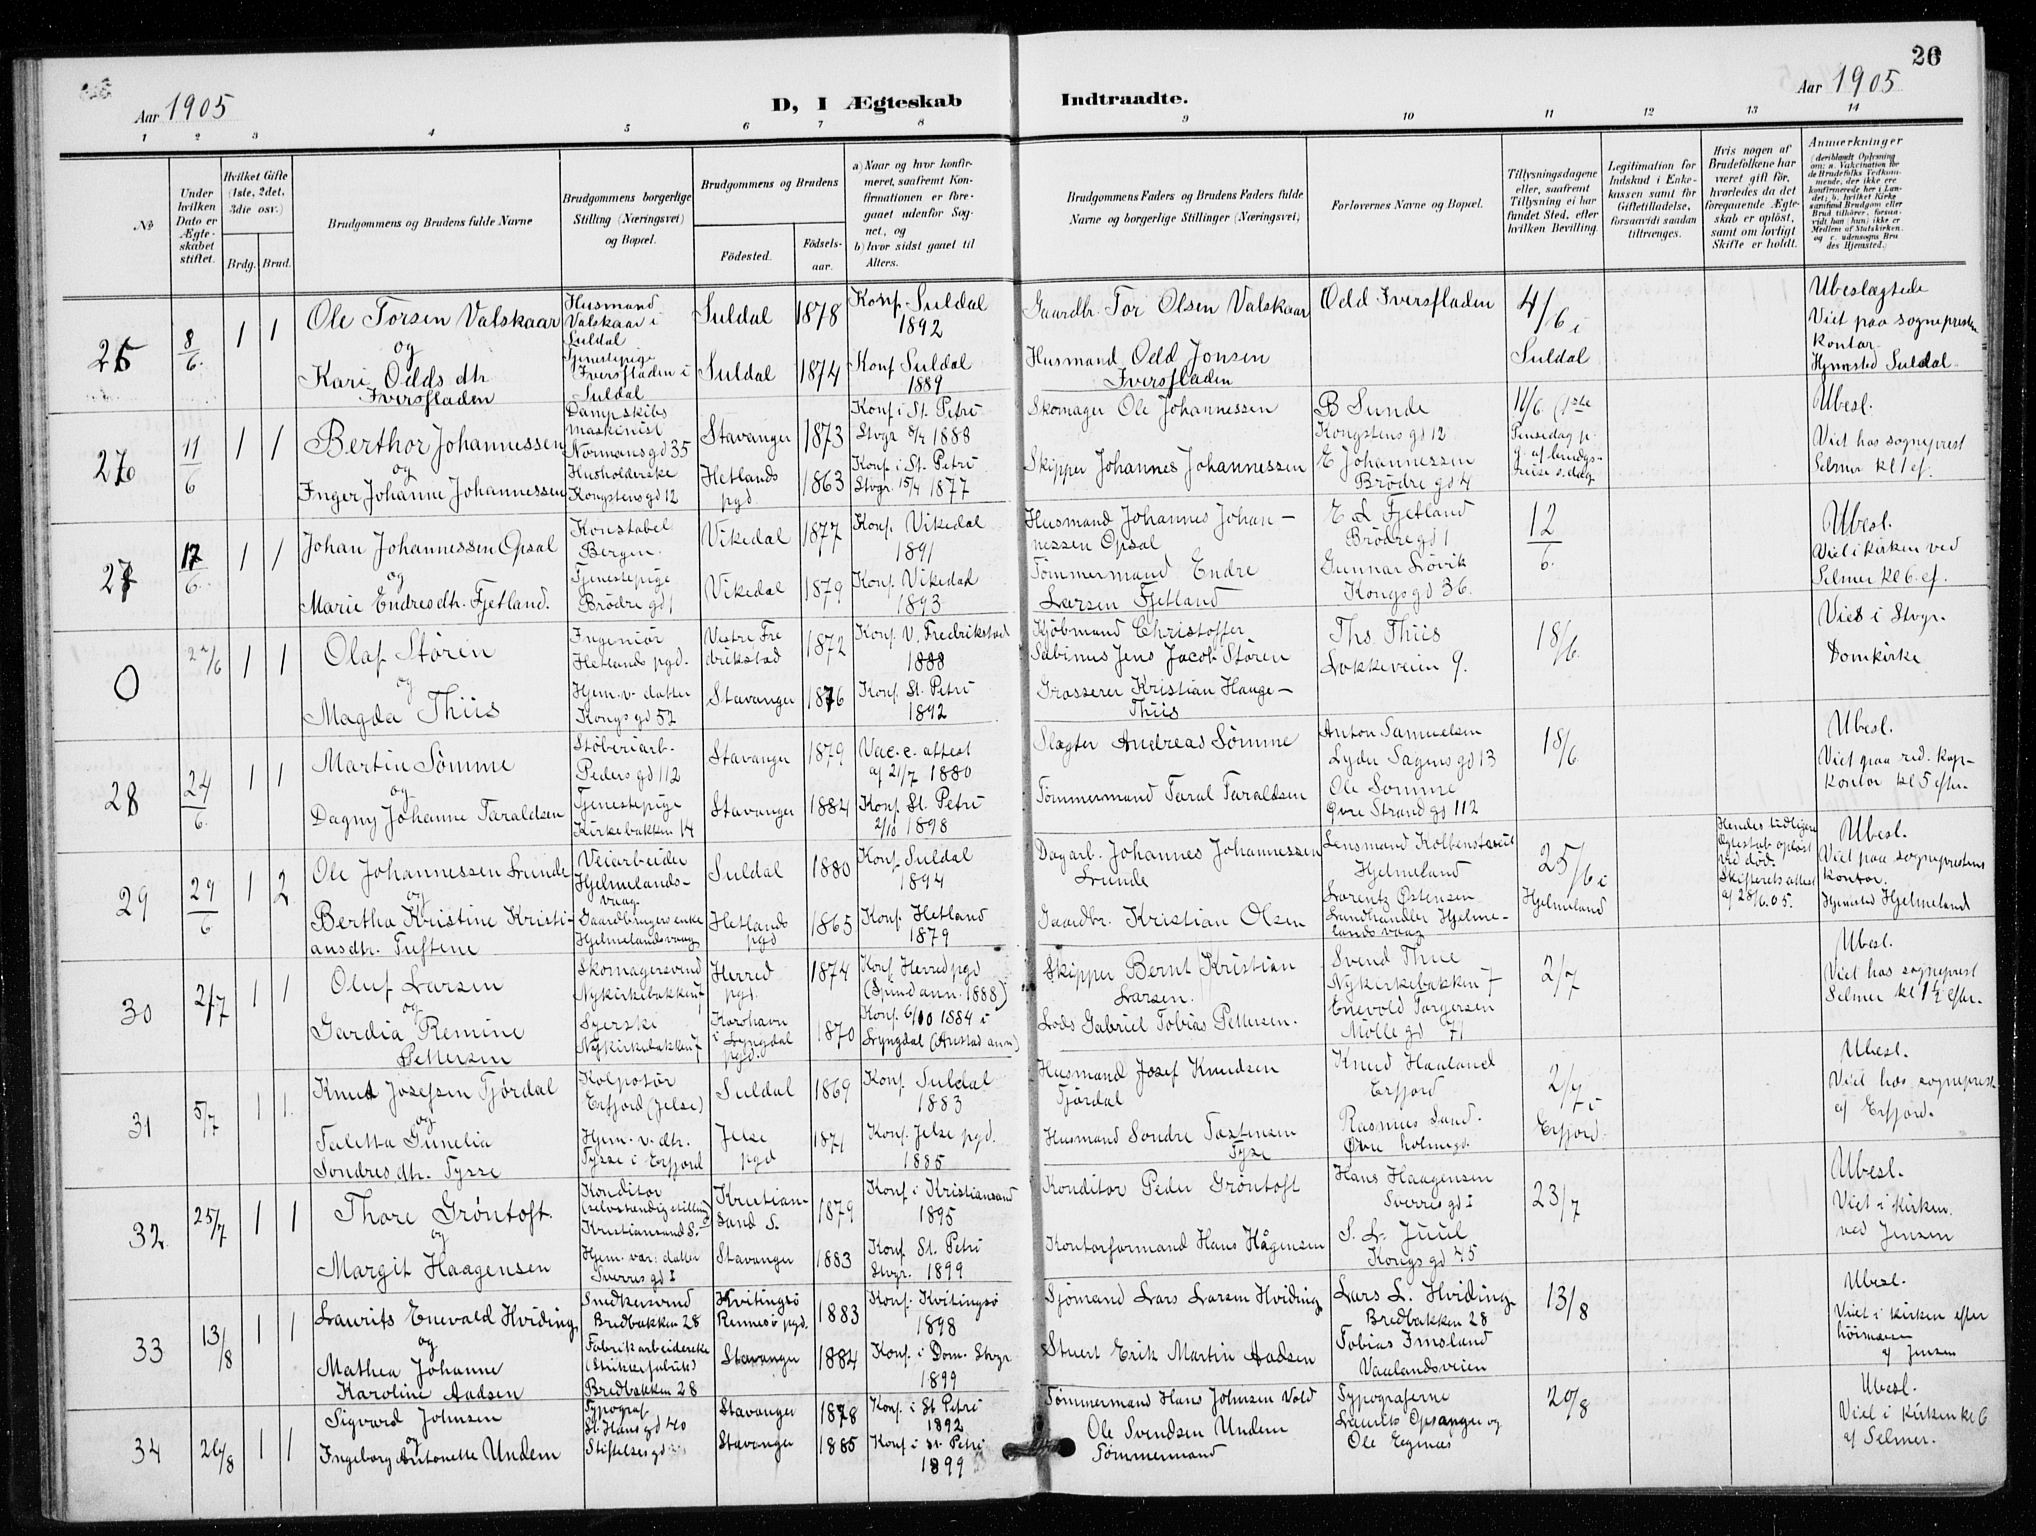 26
Aar 1905
D, I Ægteskab Indtraadte.
Aar 1905
1 2 3 4 5 6 7 8 9 10 11 12 13 14
No
Under hvilken Dato er Ægteskabet stiftet.
Hvilket Gifte (1ste, 2det, 3die osv.)
Brdg. Brud.
Brudgommens og Brudens fulde Navne
Brudgommens borgerlige Stilling (Næringsvei) og Bopæl.
Brudgommens og Brudens
Födested.
Födselsaar.
a) Naar og hvor konfirmeret, saafremt Konfirmationen er foregaaet udenfor Sognet, og
b) hvor sidst gaaet til Alters.
Brudgommens Faders og Brudens Faders fulde Navne og borgerlige Stillinger (Næringsvei)
Forlovernes Navne og Bopæl.
Tillysningsdagene eller, saafremt Tillysning ei har fundet Sted, efter hvilken Bevilling.
Legitimation for Indskud i Enkekassen samt for Giftetilladelse, forsaavidt saadan tiltrænges.
Hvis nogen af Brudefolkene har været gift för, hvorledes da det foregaaende Ægteskab er oplöst, samt om lovligt Skifte er holdt.
Anmerkninger
(deriblandt Oplysning om: a. Vakcination for de Brudefolks Vedkommende, der ikke ere konfirmerede her i Landet; b. hvilket Kirkesamfund Brudgom eller Brud tilhörer, forsaavidt han (hun) ikke er Medlem af Statskirken, og c. udensogns Brudes Hjemsted.)
25 8/6 1 1
Ole Torsen Valskaar
og
Kari Odds dtr. Iversfladen
Husmand Valskaar i Suldal
Tjenestepige Iversfladen i Suldal
Suldal 1878 Konf. Suldal 1892
Suldal 1874 Konf Suldal 1889
Gaardbr. Tor Olsen Valskaar
Husmand Odd Jonsen Iversfladen
Odd Iversfladen
4/6 i Suldal
Ubeslægtede
Viet paa sogneprestens kontor
Hjemsted Suldal
26 11/6 1 1
Berthor Johannessen
og
Inger Johanne Johannessen
Dampskibs maskinist Normansgd 35
Husholderske Kongstensgd 12
Stavanger 1873 Konf i St. Petri Stvgr 8/4 1888
Hetlands pgd. 1863 Konf. i St. Petri Stvgr. 15/4 1877
Skomager Ole Johannessen
Skipper Johannes Johannessen
B Sunde Kongstensgd 12
E Johannessen Brödregd 4
11/6 (1ste Pinsedag p.
Ubesl.
Viet hos sogneprest Selmer kl 1 ef.
27 17/6 1 1
Johan Johannessen Opsal
og
Marie Endresdtr. Fjetland.
Konstabel Bergen.
Tjenestepige Brödregd 1
Vikedal 1877 Konf. Vikedal 1891
Vikedal 1879 Konf. Vikedal 1893
Husmand Johannes Johannessen Opsal
Tömmermand Endre Larsen Fjetland
E L Fjetland Brödregd 1
Gunnar Lövik Kongsgd 36.
12/6
Ubesl.
Viet i kirken ved Selmer kl 6. ef.
0 22/6 1 1
Olaf Stören
og
Magda Thiis
Ingeniör Hetlands pgd.
Hjem. v. datter Kongsgd 52
Vestre Fredrikstad 1872 Konf. V. Fredrikstad 1888
Stavanger 1876 Konf. St. Petri 1892
Kjöbmand Christoffer Sabinus Jens Jacob Stören
Grosserer Kristian Hauge-Thiis
Ths. Thiis Lökkeveien 9.
18/6
Viet i Stvgr. Domkirke
28 24/6 1 1
Martin Sömme
og
Dagny Johanne Taraldsen
Stöberiarb. Pedersgd 112
Tjenestepige Kirkebakken 14
Stavanger 1879 Vac. c. attest af 21/7 1880
Stavanger 1884 Konf. St. Petri 2/10 1898
Slagter Andreas Sömme
Tömmermand Taral Taraldsen
Anton Samuelsen Lyder Sagensgd 13
Ole Sömme Övre Strandgd 112
18/6
Ubesl.
Viet paa red. kap-kontor kl 5 efter.
29 29/6 1 2
Ole Johannessen Lunde
og
Bertha Kristine Kristiansdtr. Tuftene
Veiarbeider Hjelmelandsvaag
Gaardbrugerenke Hjelmelandsvaag
Suldal 1880 Konf. Suldal 1894
Hetlands pgd 1865 Konf. Hetland 1879
Dagarb. Johannes Johannessen Lunde
Gaardbr. Kristian Olsen
Lensmand Kolbenstvedt Hjelmeland
Lorentz Östensen Landhandler Hjelmelandsvaag
25/6 i Hjelmeland
Hendes tidligere Ægteskab oplöst ved död. Skifterets attest af 28/6.05.
Ubesl.
Viet paa sogneprestens kontor.
Hjemsted Hjelmeland
30 2/7 1 1
Oluf Larsen
og
Gerdia Remine Pettersen
Skomagersvend Nykirkebakken 7
Syerske Nykirkebakken 7
Herred pgd. 1874 Konf. Herred pgd (Spind ann. 1888)
Korshavn i Lyngdal pgd. 1870 Konf. 6/10 1884 i Lyngdal (Austad ann)
Skipper Bernt Kristian Larsen.
Lods Gabriel Tobias Pettersen.
Svend Thue Nykirkebakken 7
Enevold Torgersen Möllegd 71
2/7
Ubesl.
Viet hos sogneprest Selmer kl 1½ efter.
31 5/7 1 1
Knut Josefsen Fjördal
og
Taletta Gunelia Sondresdtr. Tysse
Kolportör Erfjord (Jelse)
Hjem. v. dtr. Tysse i Erfjord
Suldal 1869 Konf. Suldal 1883
Jelse pgd 1871 Konf. Jelse pgd. 1885
Husmand Josef Knudsen Fjördal
Husmand Sondre Tostensen Tysse
Knud Haaland Erfjord
Rasmus Sand. Övre holmegd.
2/7 i Erfjord.
Ubesl.
Viet hos sogneprest af Erfjord.
32. 25/7 1 1
Thore Gröntoft.
og
Margit Haagensen
Konditor (selvstændig stilling) Kristiansand S.
Hjem. vær. datter Sverresgd I
Kristiansand S. 1879 Konf i Kristiansand 1895
Stavanger 1883 Konf. St. Petri Stvgr. 1899
Konditor Peder Gröntoft
Kontorformand Hans Hågensen
Hans Haagensen Sverresgd I
S. L. Juul Kongsgd 45
23/7
Ubesl.
Viet i kirken ved Jensen
33 13/8 1 1
Laurits Enevald Hviding
og
Mathea Johanne Karoline Aadsen
Snedkersvend Bredbakken 28
Fabrikarbeiderske (Strikkefabrik) Bredbakken 28
Kvitingsö Rennesö pgd. 1883 Konf. Kvitingsö 1898
Stavanger 1884 Konf. i Dom. Stvgr 1899
Sjömand Lars Larsen Hviding
Stuert Erik Martin Aadsen
Lars L. Hviding Bredbakken 28
Tobias Imsland Vaalandsveien
13/8
Ubesl.
Viet i kirken efter höimesse af Jensen
34 26/8 1 1
Sigvard Johnsen
og
Ingeborg Antonette Undem
Typograf St. Hansgd 40
Stiftelsesgd
Stavanger 1878 Konf. i St Petri 1892
Stavanger 1885 Konf i St. Petri 1899
Tömmermand Hans Johnsen Vold
Ole Svendsen Undem Tömmermand
Typograferne Laurits Opsanger og Ole Eegnæs
20/8
Ubesl.
Viet i kirken kl 6 af Selmer.